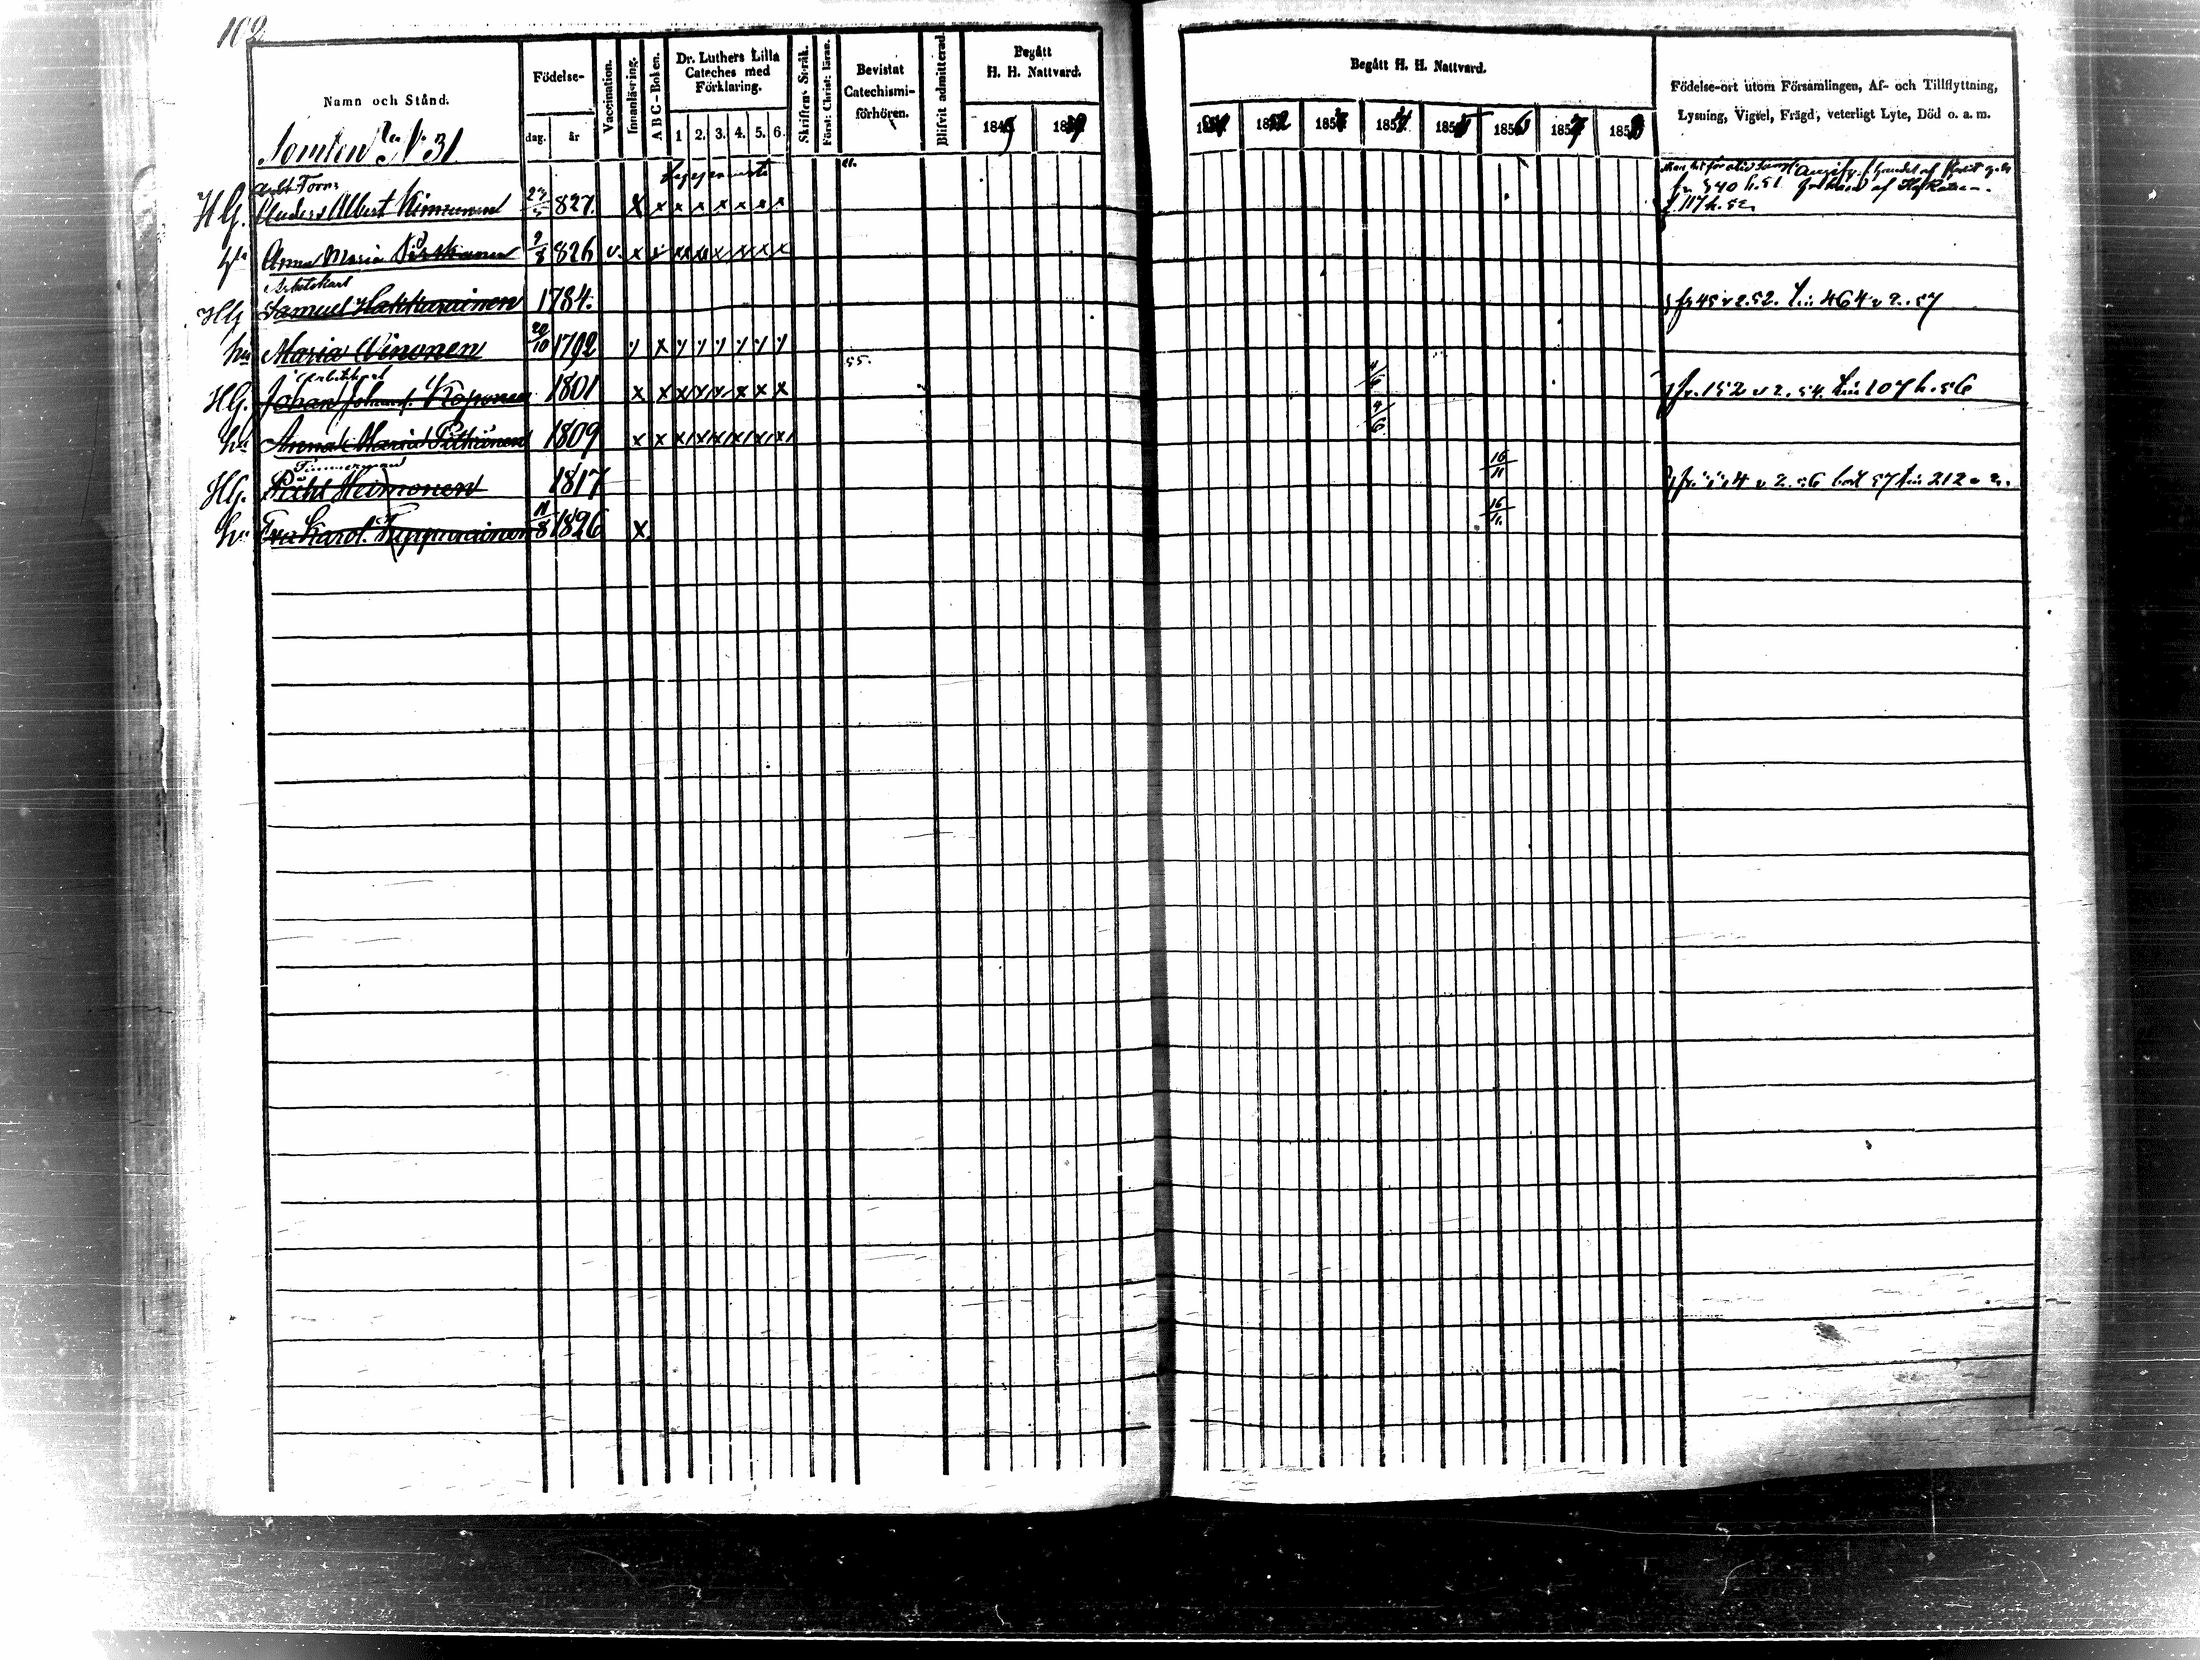 102
Namn och Stånd.
Födelse-
dag. år
Vaccination.
Innanläsning.
A B C - Boken.
Dr. Luthers Lilla Cateches med Förklaring.
1 2. 3. 4. 5. 6.
Skriftens Språk.
Först: Christ: läran.
Bevistat Catechismi-förhören.
Blifvit admitterad.
Begått H. H. Nattvard.
1849 1850
Begått H. H. Nattvard.
1851 1852 1853 1854 1855 1856 1857 1858
Födelse-ort utom Församlingen, Af- och Tillflyttning,
Lysning, Vigsel, Frägd, veterligt Lyte, Död o. a. m.
Tomten No 31
HG. Anders Albert Kinnunen 827. x x x x x x x x
fr 540 h. 51
f. 117 h. 52
hu Anna Maria 2/8 826 v. x x x x x x x x
Arbetskarl
HG Samuel Hakkarainen 1784. fr 45 v 2. 52. 464 v 2. 57
hu Maria Winonen 20/10 1792
55.
Arbetskarl
HG. Johan Johansf. Koponen 1801 x x x x x x x x 4/6 fr. 152 v 2. 54. 107 h. 56
hu Anna Maria Pitkänen 1809 x x x x x x x x 4/6
Timmerman
HG. Heimonen 1817 16/11 212
hu Eva Karol. Tuppurainen 11/8 1826 x 16/11